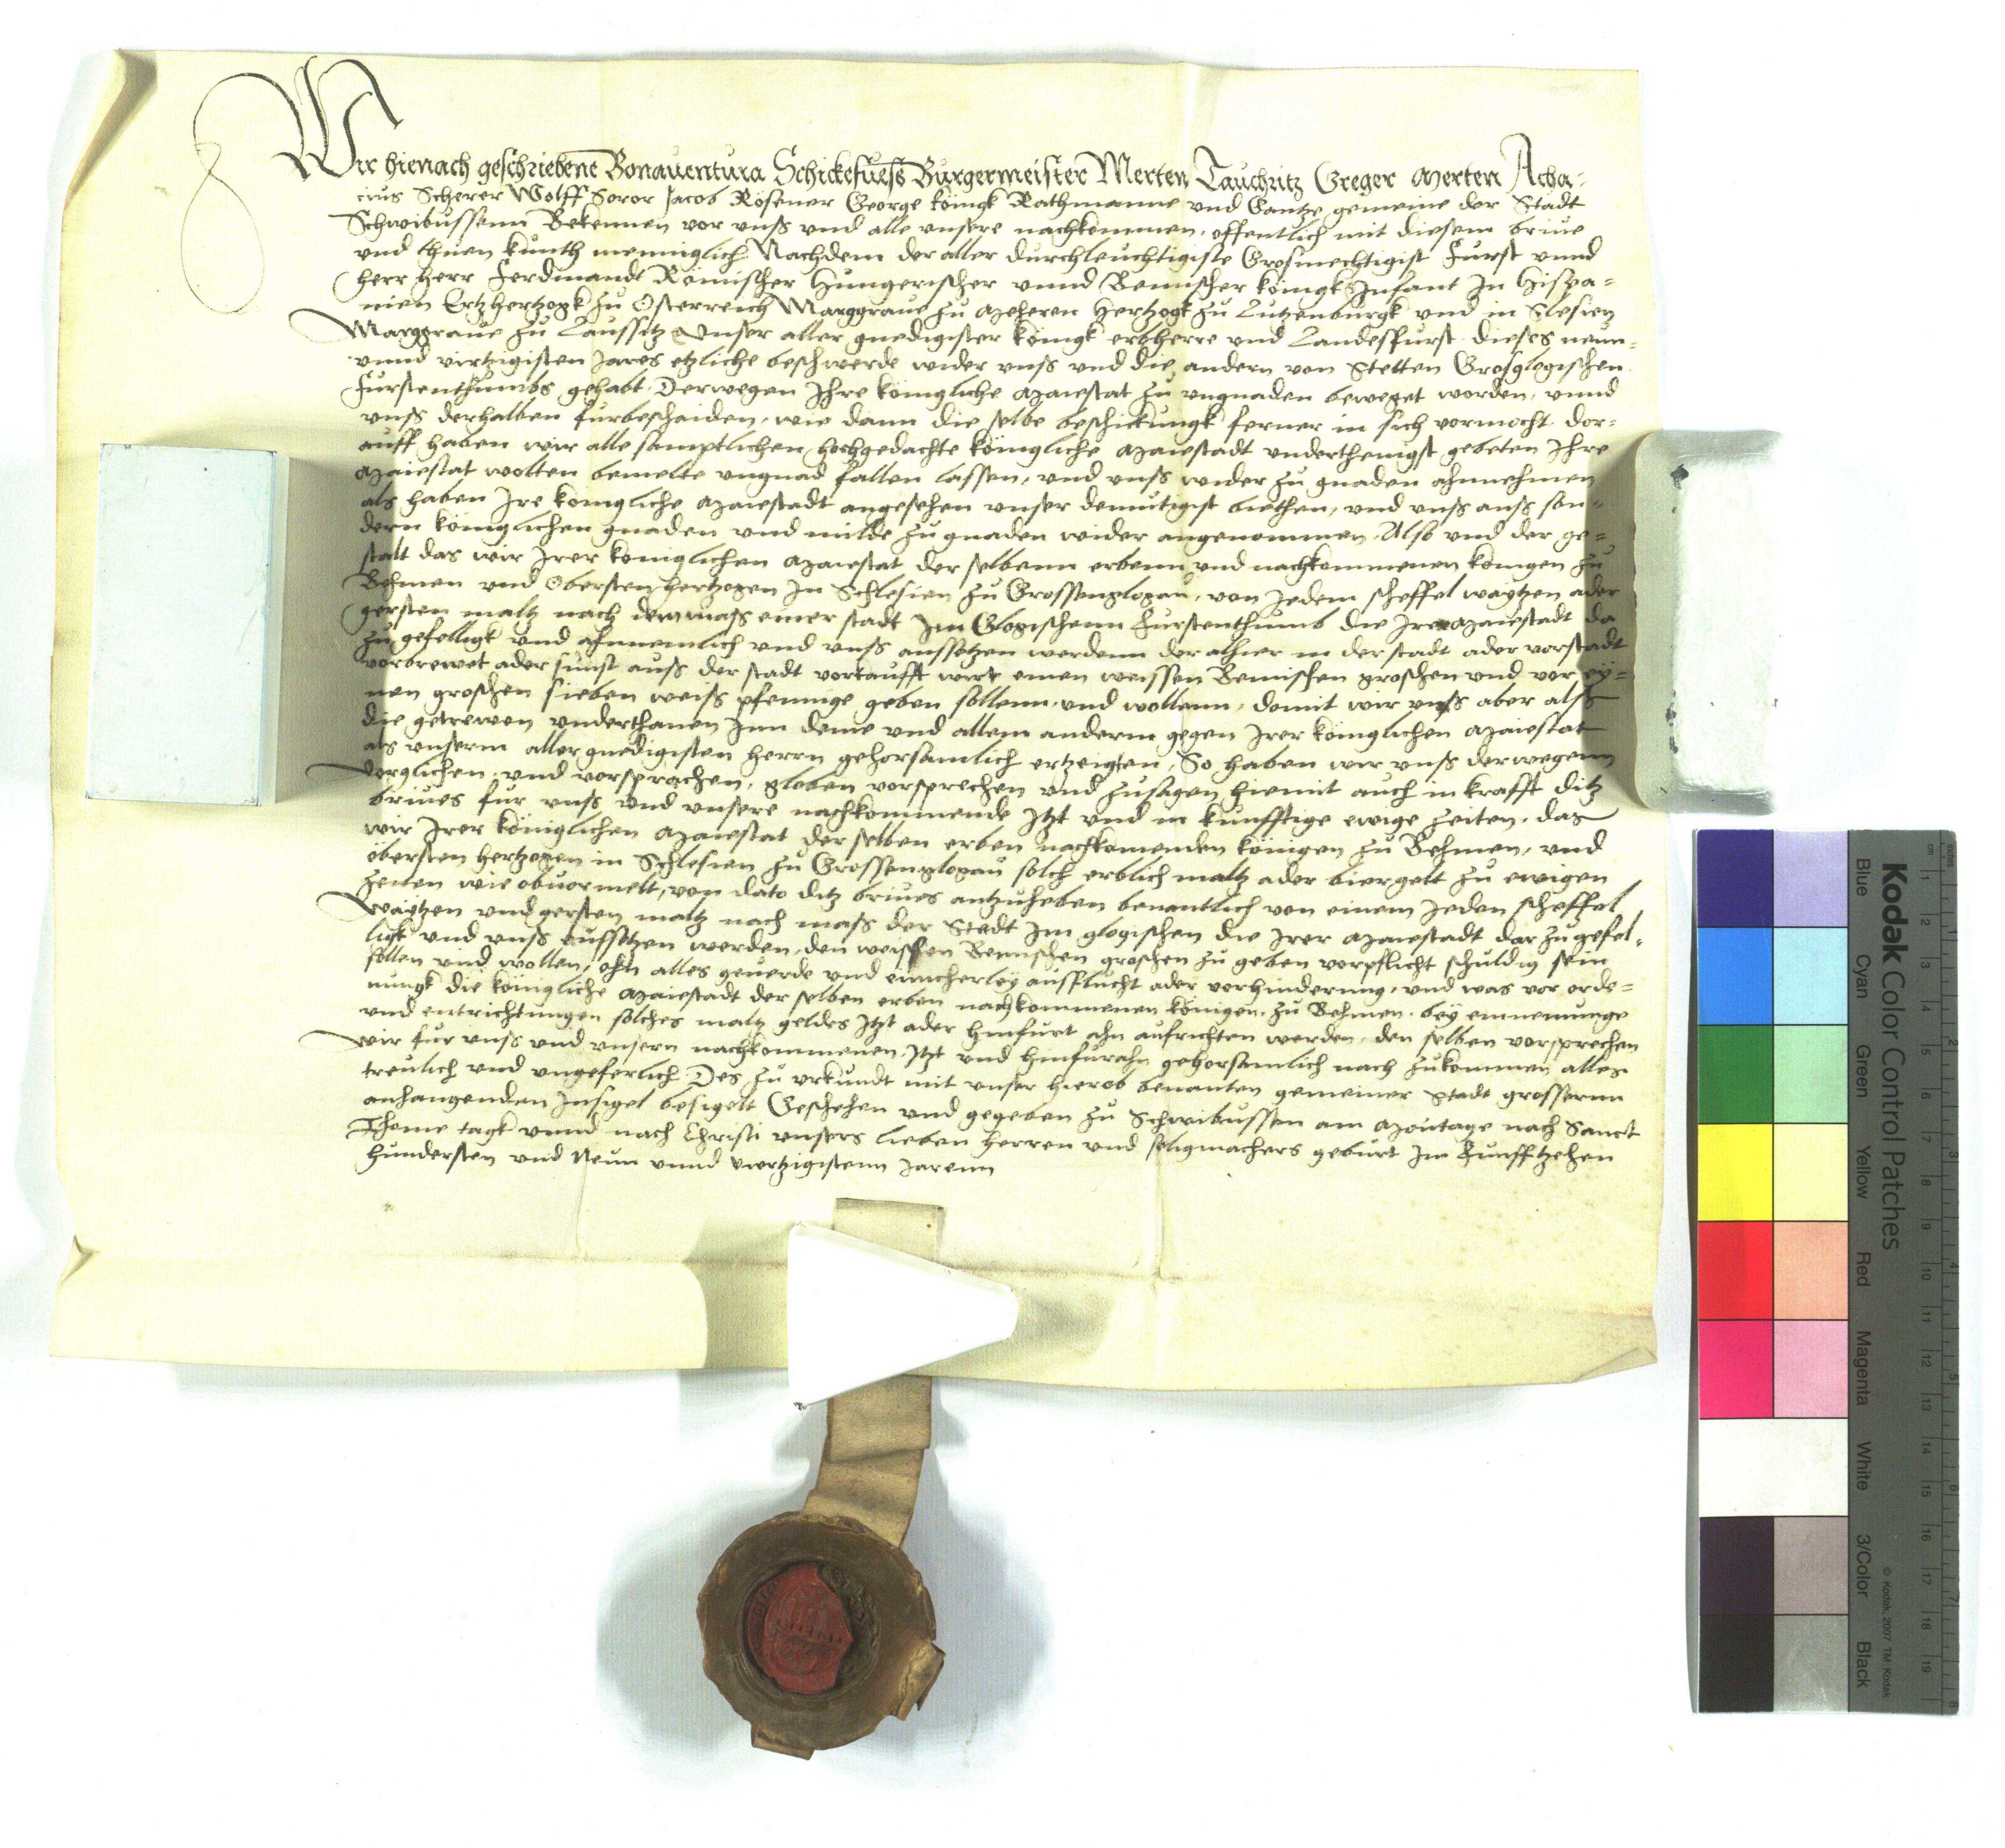 Wir hienach geschriebene Bonauentura Schickefuess Burgermeister Merten Tauchritz Greger Merten Acha=
cius Scherer Wolff Soror Jacob Rösener George königk Rathmanne vnd Gantze gemeine der Stadt
Schwibussenn Bekennen vor vnss vnd alle vnsere nachkommen, offentlich mit diesem briue
vnd thuen kunth menniglich Nachdem der aller durchleuchtigiste Grosmechtigist Furst vnnd
herr herr Ferdinandt Römischer Hungerischer vnnd Bemischer königk Infant In Hispa=
nien Ertzhertzogk zu Osterreich Marggraue zu Meheren Hertzogk zu Lutzenburgk vnd in Slesien
Marggraue zu Laussitz Vnser aller gnedigister königk erbherre vnd Landesfurst dieses neun=
vnnd virtzigisten Jares etzliche beschwerde wider vnss vnd die andern von Stetten Grosglogischen
Furstenthumbs gehabt. Derwegen Ihre königliche Maiestat zu vngnaden beweget worden, vnnd
vnss derhalben furbescheiden, wie dann die selbe beschickungk ferner in sich vormocht dor=
auff haben wir alle samptlichen hochgedachte königliche Maiestadt vnderthenigst gebeten Ihre
Maiestat wolten bemelte vngnad fallen lassen, vnd vnss wider zu gnaden ahnnehmen
als haben Ire königliche Maiestadt angesehen vnser demutigist biethen, vnd vnss auss son=
dern königlichen gnaden vnd milde zu gnaden wider angenommen. Also vnd der ge=
stalt das wir Irer königlichen Maiestat der selbenn erbenn vnd nachkommenen königen zu
Behmen vnd Obersten hertzogen In Schlesien zu Grossenglogau, von Jedem scheffel waytzen ader
gersten maltz nach dem mass einer stadt Im Glogischenn Furstenthumb die Irer Maiestadt da
zu gefelligk vnd ahnnemlich vnd vnss aussetzen werdenn der alhier in der stadt ader vorstadt
vorbrewet ader sunst auss der stadt vorkaufft wirt einen weissen Bemischen groschen vnd vor ey=
nen groschen sieben weiss pfennige geben sollenn, vnd wollenn, domit wir vnss aber alss
die getrewen vnderthanen Inn deme vnd allem anderm gegen Irer königlichen Maiestat
als vnserm aller gnedigisten herrn gehorsamlich ertzeigten, So haben wir vnss derwegenn
vorglichen, vnd vorsprachen, gleben vorsprechen vnd zusagen hiemit auch in krafft ditz
briues fur vnss vnd vnsere nachkommende Itzt vnd in kunfftige ewige zeiten, das
wir Irer königlichen Maiestat der selben erben nachkomenden königen zu Behmen, vnd
öbersten hertzogen in Schlesien zu Grossenglogau solch erblich maltz ader biergelt zu ewigen
zeiten wie obuormelt, von dato ditz briues antzuheben benantlich von einem Jeden scheffel
waytzen vnd gersten maltz nach mass der Stadt Im glogischen die Irer Maiestadt dar zu gefel=
ligk vnd vnss auffsetzen werden, den weissen Bemischen groschen zu geben vorpflicht schuldig sein
sollen vnd wollen, ohn alles geuerde vnd einicherley ausflucht ader vorhinderung, vnd was vor orde=
nungk die königliche Maiestadt der selben erben nachkommenen königen, zu Behmen, bey einnemunge
vnd entrichtungen solches maltz geldes Itzt ader hinfurt ahn aufrichten werden, den selben vorsprechen
wir fur vnss vnd vnsern nachkommenen, Itzt vnd hinfurahn gehorsamlich nach zukommen alles
treulich vnd vngeferlich. Des zu vrkundt mit vnser hierob benanten gemeiner stadt grosserm
anhangenden Insigel besigelt Geschehen vnd gegeben zu Schwibussen am Montage nach Sanct
Thome tagk vnnd nach Christi vnsers lieben herren vnd seligmachers geburt Im Funfftzehen
hundersten vnd Neun vnnd viertzigistenn Jarenn
Kodak Color Control Patches
Blue Cyan Green Yellow Red Magenta White 3/Color Black
© Kodak, 2007 TM: Kodak
cm 1 2 3 4 5 6 7 8 9 10 11 12 13 14 15 16 17 18 19
inches 1 2 3 4 5 6 7 8